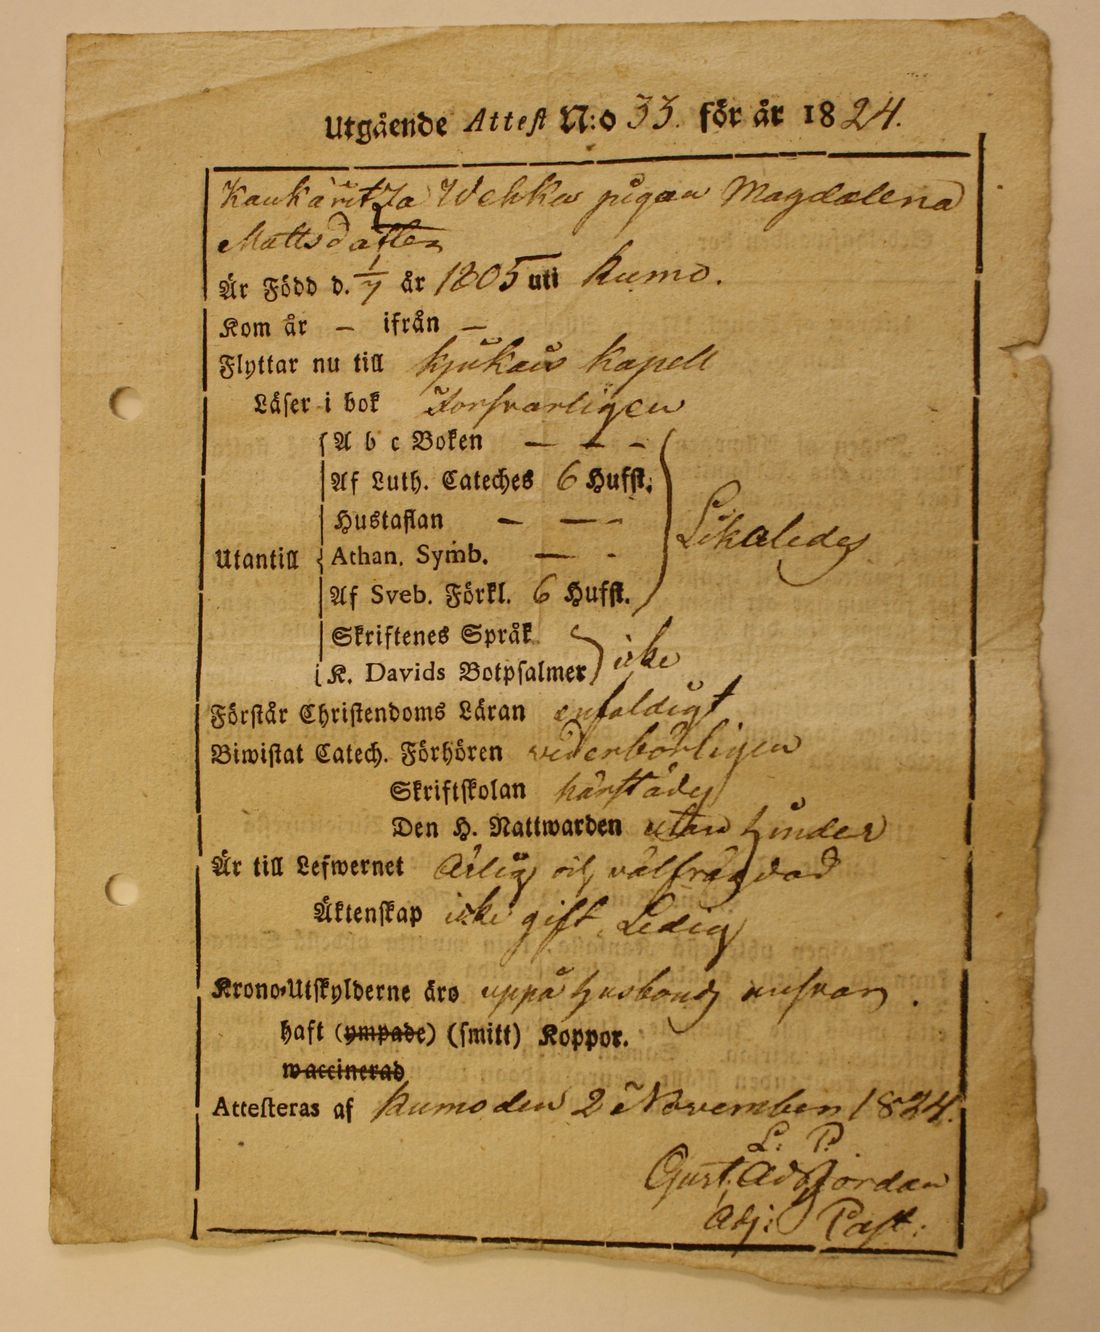 Utgående Attest N:o 33. för år 1824.
Kaukäritza Wehka pigan Magdalena
Mattsdotter
Är Född d. 1/7 år 1805 uti Kumo.
Kom år — ifrån —
Flyttar nu till Kjukais Kapell
Läser i bok Forsvarligen
A b c Boken — — —
Af Luth. Cateches 6 Hufst.
Hustaflan — — -
Likaledes
Utantill Athan. Symb. — -
Af Sveb. Förkl. 6 Hufst.
Skriftenes Språk
K. Davids Botpsalmer icke
Förstår Christendoms Läran enfaldigt
Biwistat Catech. Förhören vederbörligen
Skriftskolan härstädes
Den H. Nattwarden utan hinder
Är till Lefwernet Ärlig och välfrägdad
Äktenskap icke gift Ledig
Krono-Utskylderne äro uppå husbonds ansvar.
haft (ympade) (smitt) Koppor.
waccinerad
Attesteras af Kumo den 2 November 1824.
L. P.
Gust: Ad: Hjordan
Adj: Past: